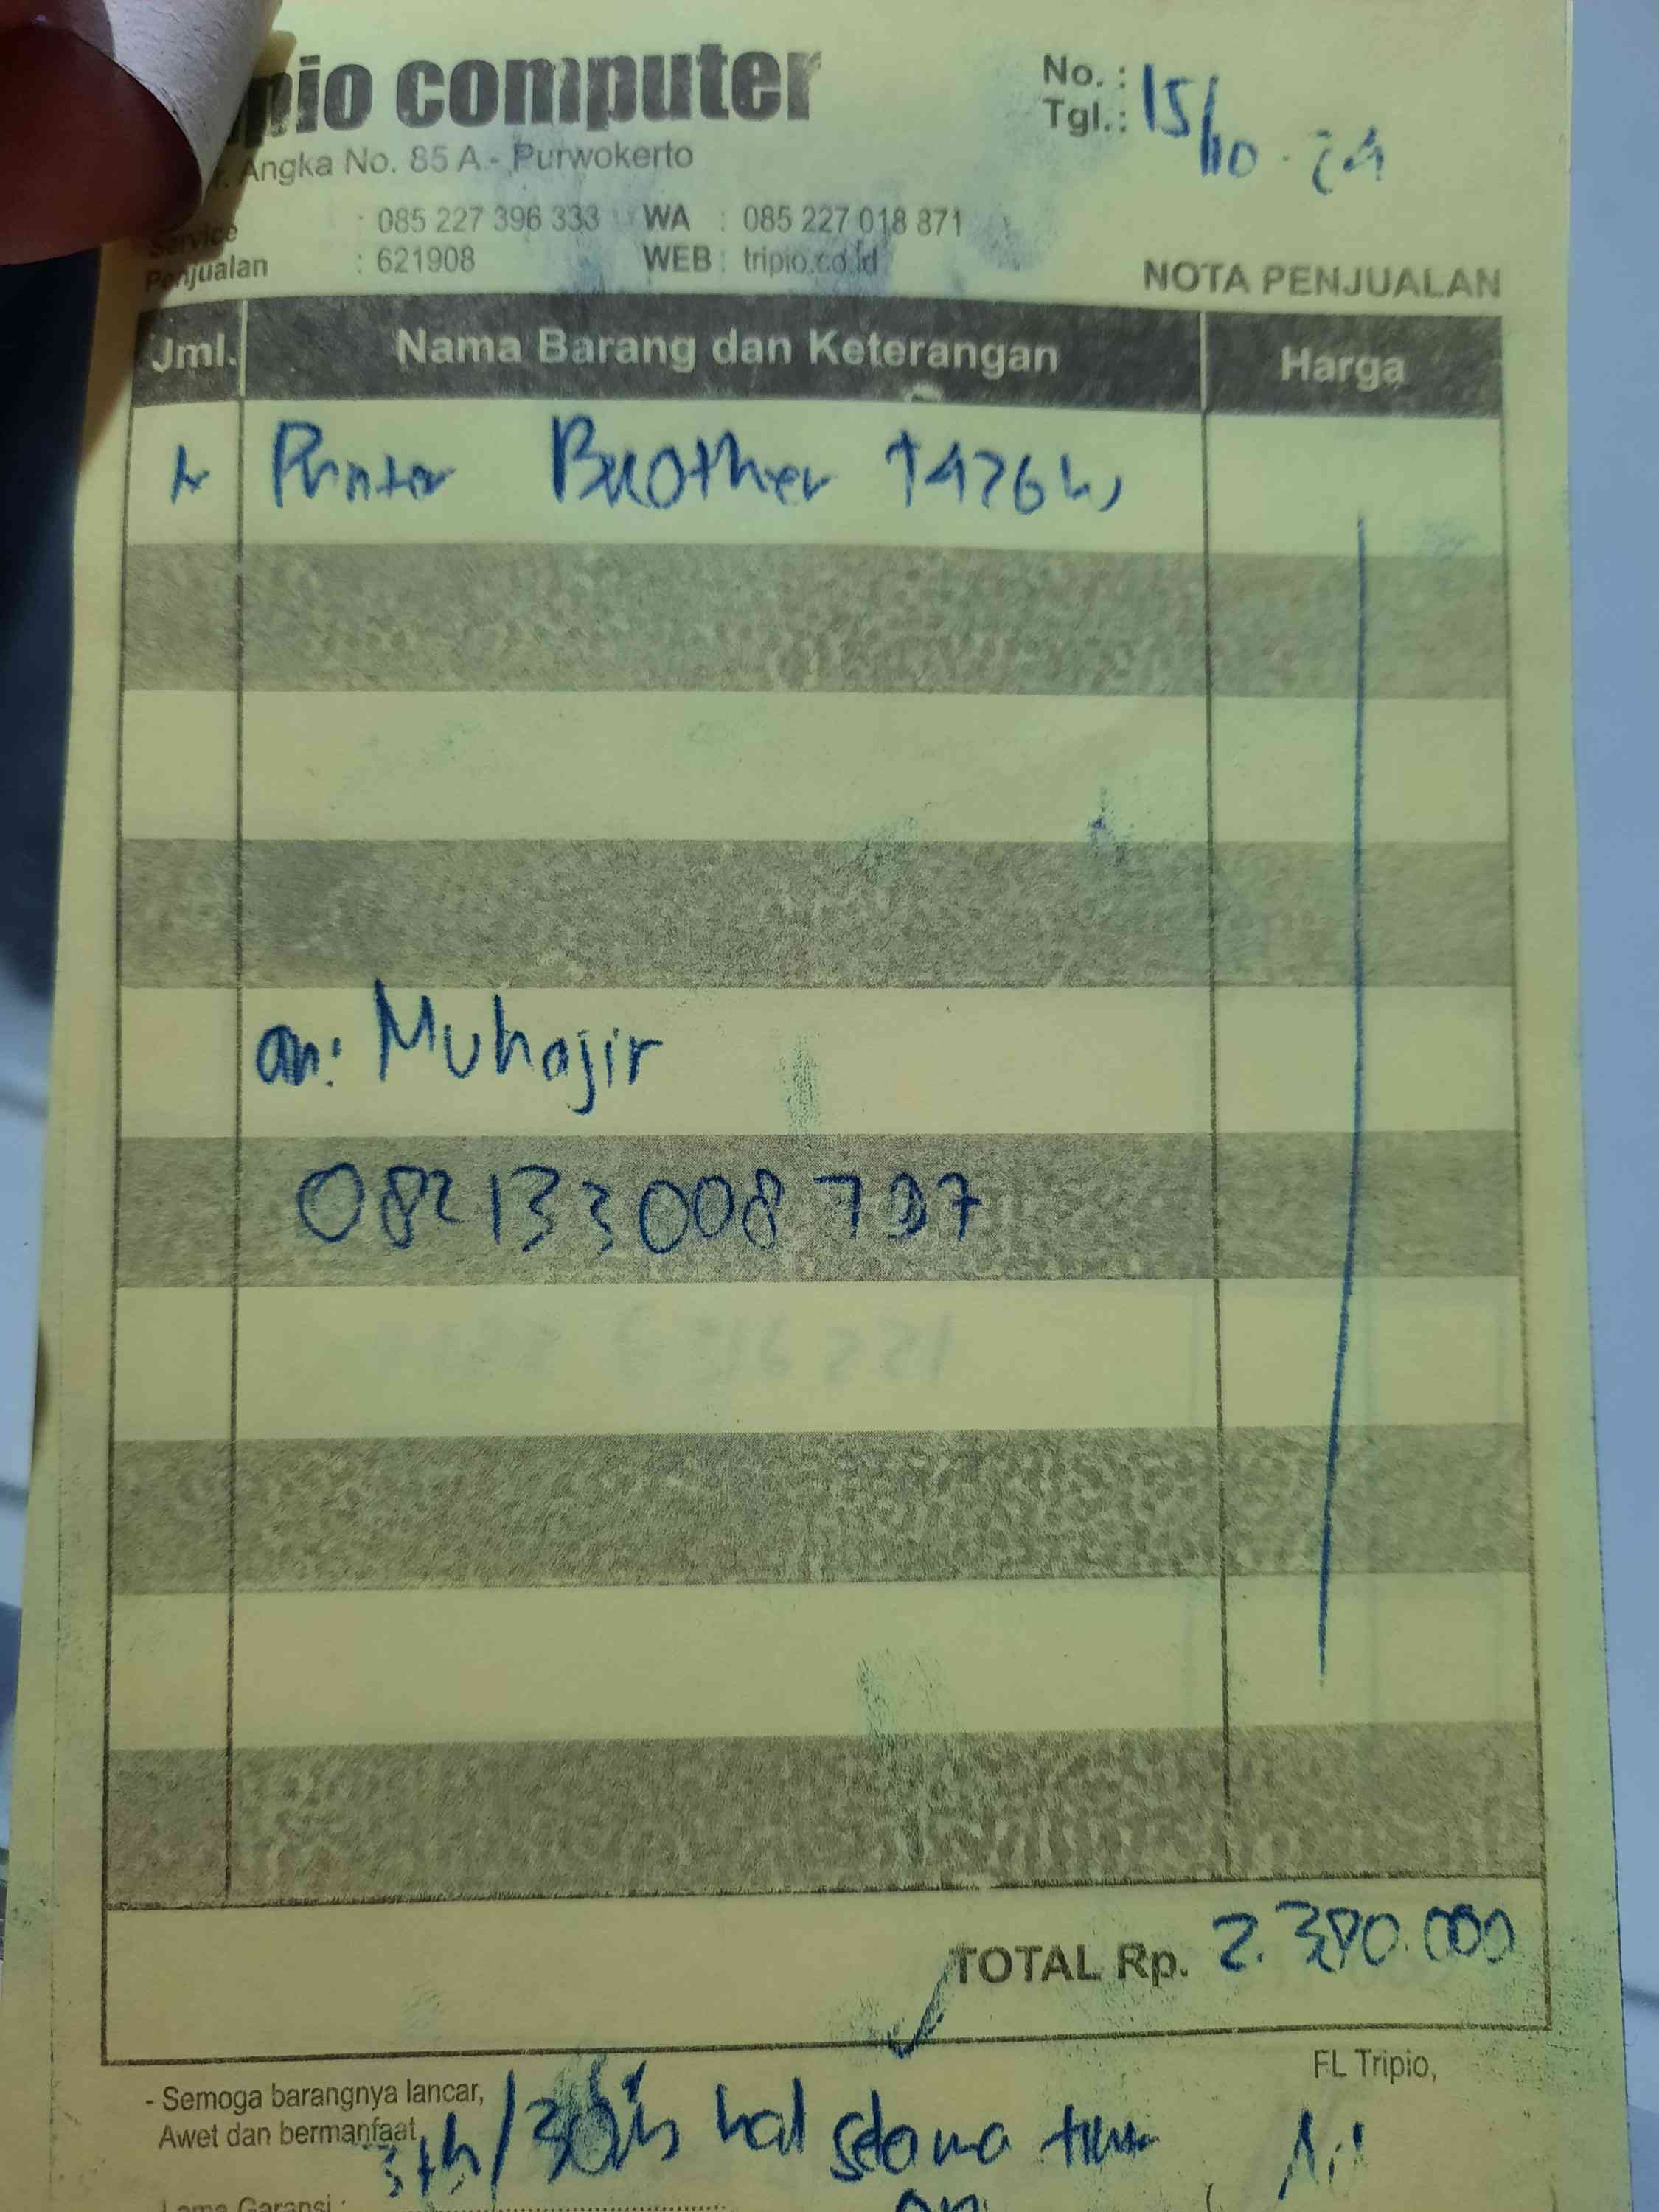 pio computer
No. :
Tgl.: 15/10-24
Angka No. 85 A - Purwokerto
Service : 085 227 396 333 WA : 085 227 018 871
Penjualan : 621908 WEB : tripio.co.id
NOTA PENJUALAN
Jml. Nama Barang dan Keterangan Harga
Printer Brother T426W
an: Muhajir
082133008797
TOTAL Rp. 2.380.000
FL Tripio,
- Semoga barangnya lancar,
Awet dan bermanfaat
3th/30
Lama Garansi :